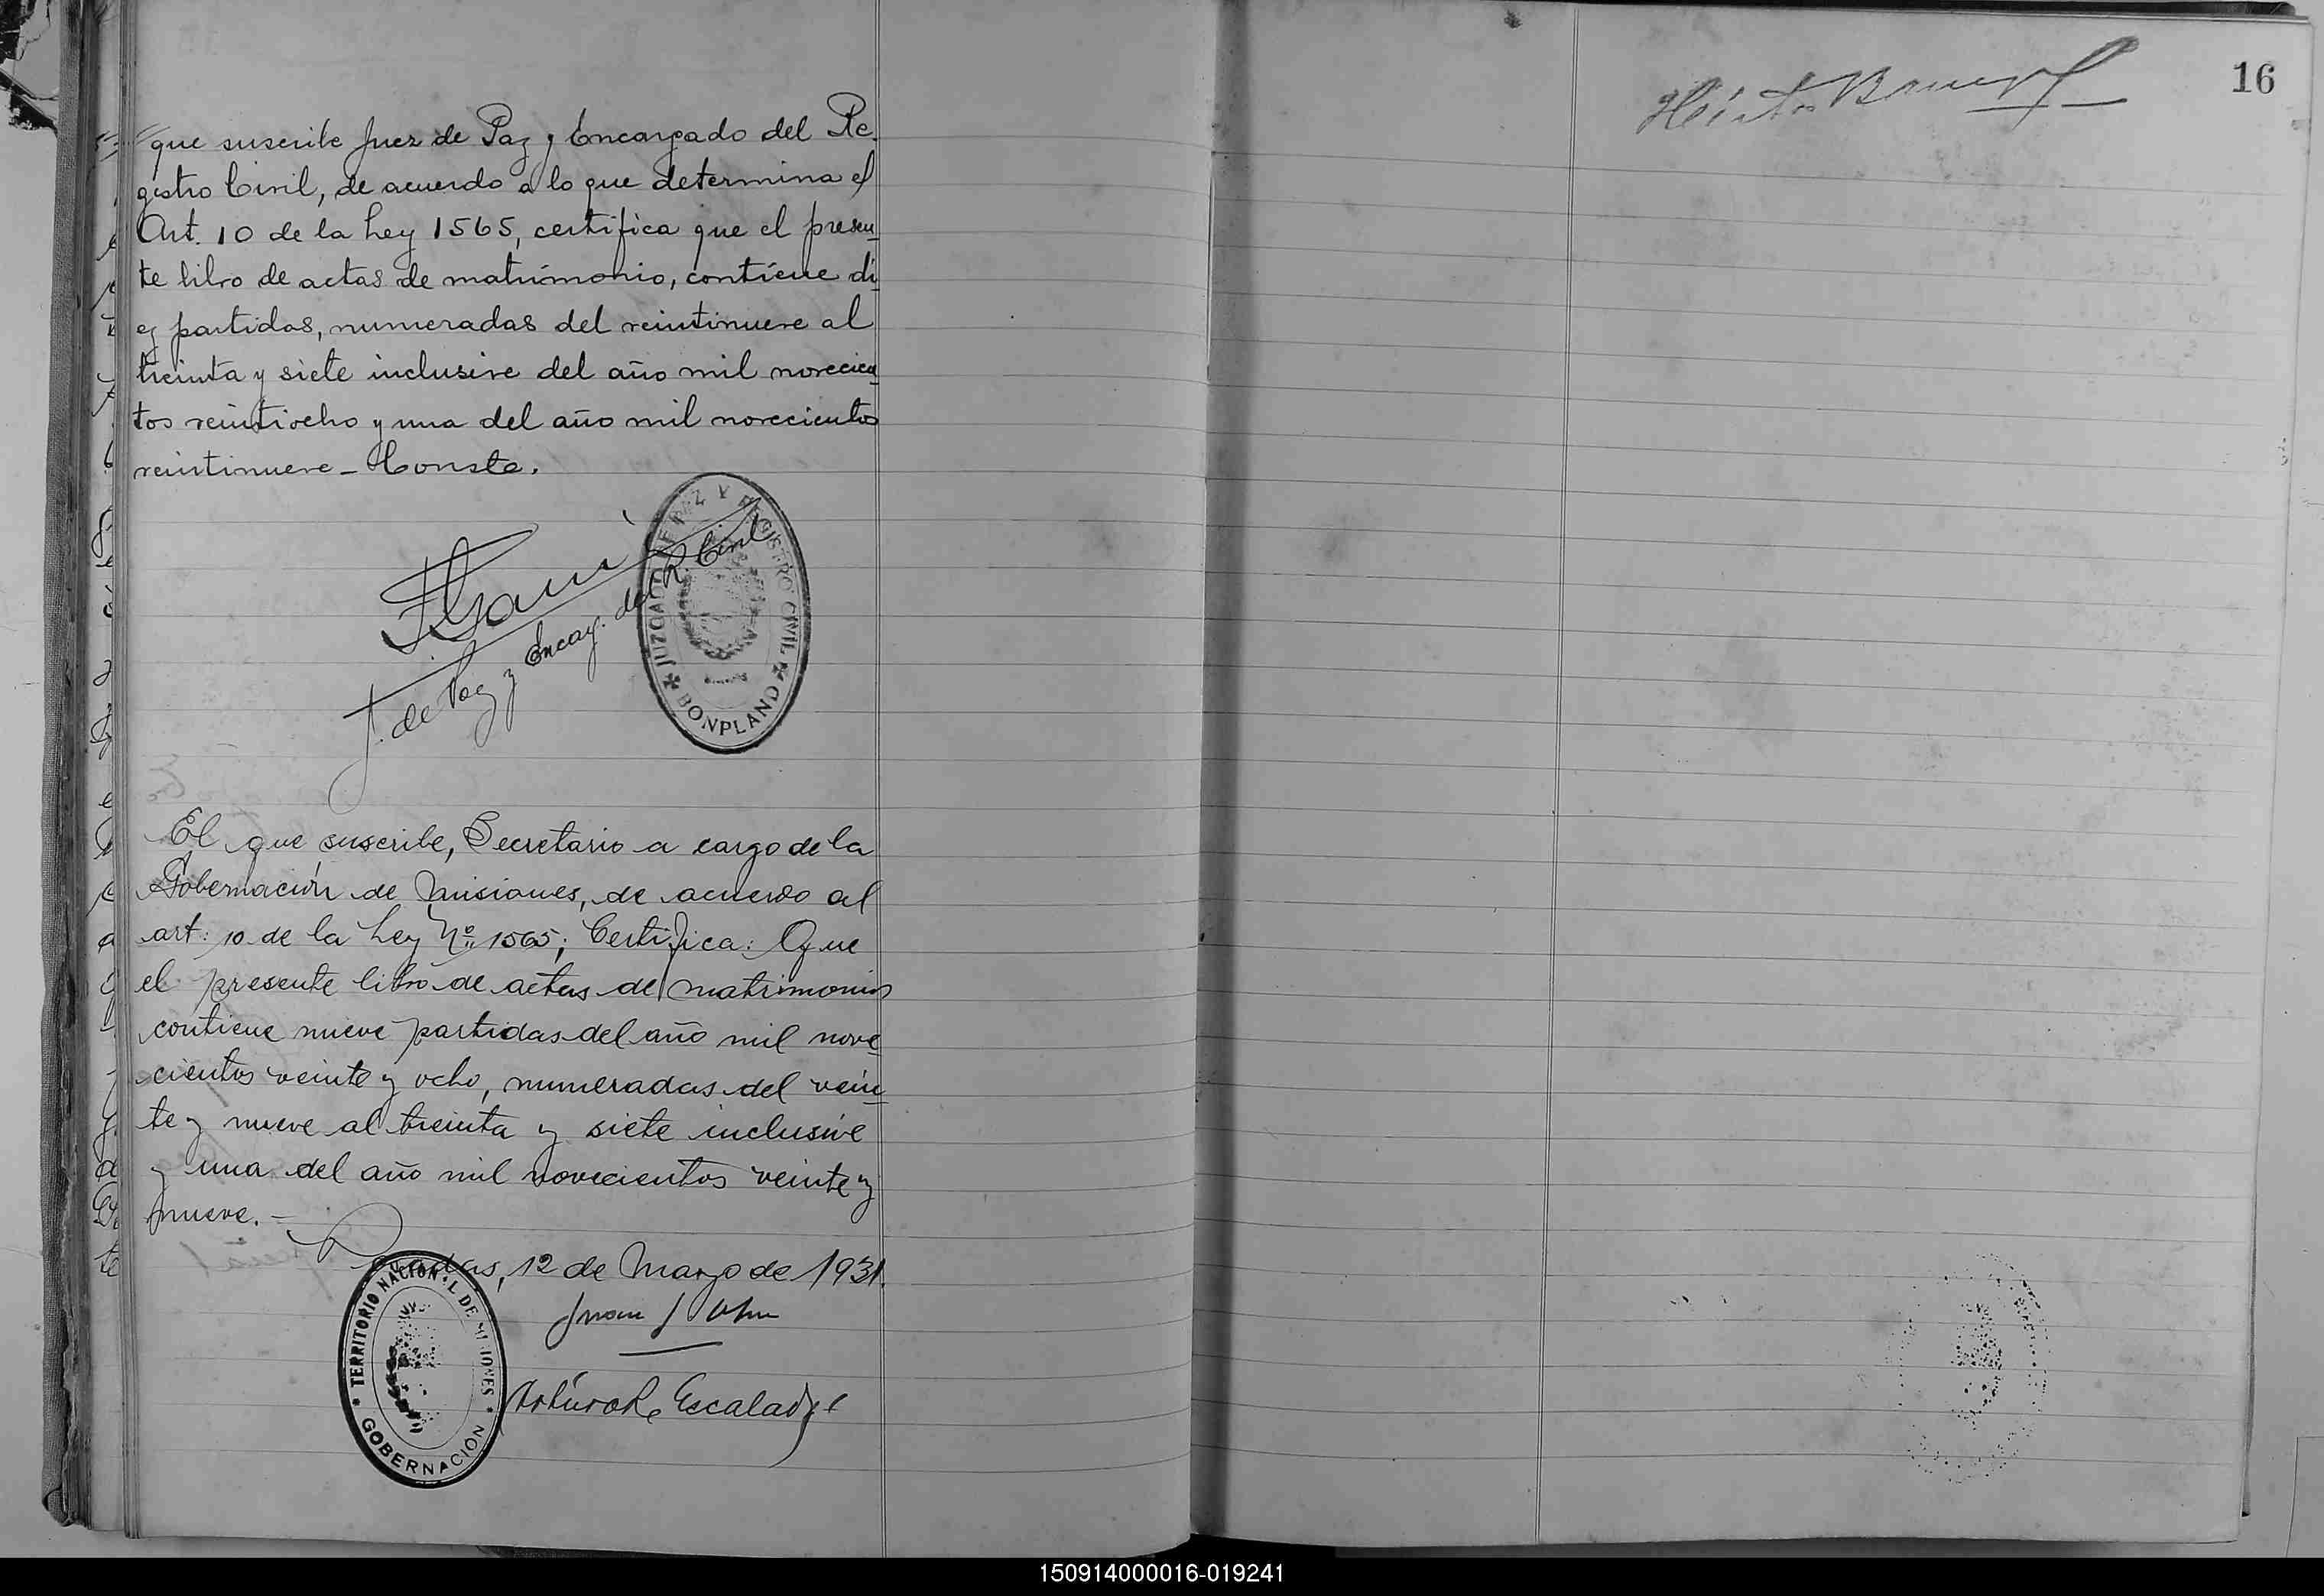 que suscribe Juez de Paz y Encargado del Re-
gistro Civil, de acuerdo a lo que determina el
Art. 10 de la Ley 1565, certifica que el presen-
te libro de actas de matrimonio, contiene di-
ez partidas, numeradas del veintinueve al
treinta y siete inclusive del año mil novecien-
tos veintiocho y una del año mil novecientos
veintinueve - Conste.
J. de Paz y Encarg. del R. Civil
JUZGADO DE PAZ Y REGISTRO CIVIL
BONPLAND
El que suscribe, Secretario a cargo de la
Gobernación de Misiones, de acuerdo al
art: 10 de la Ley Nº 1565; Certifica: Que
el presente libro de actas de matrimonios
contiene nueve partidas del año mil nove-
cientos veinte y ocho, numeradas del vein-
te y nueve al treinta y siete inclusive
y una del año mil novecientos veinte y
nueve. -
Posadas, 12 de Marzo de 1931.
TERRITORIO NACIONAL DE MISIONES
GOBERNACIÓN
Juan J
Arturo R. Escalada
Héctor
16
150914000016-019241